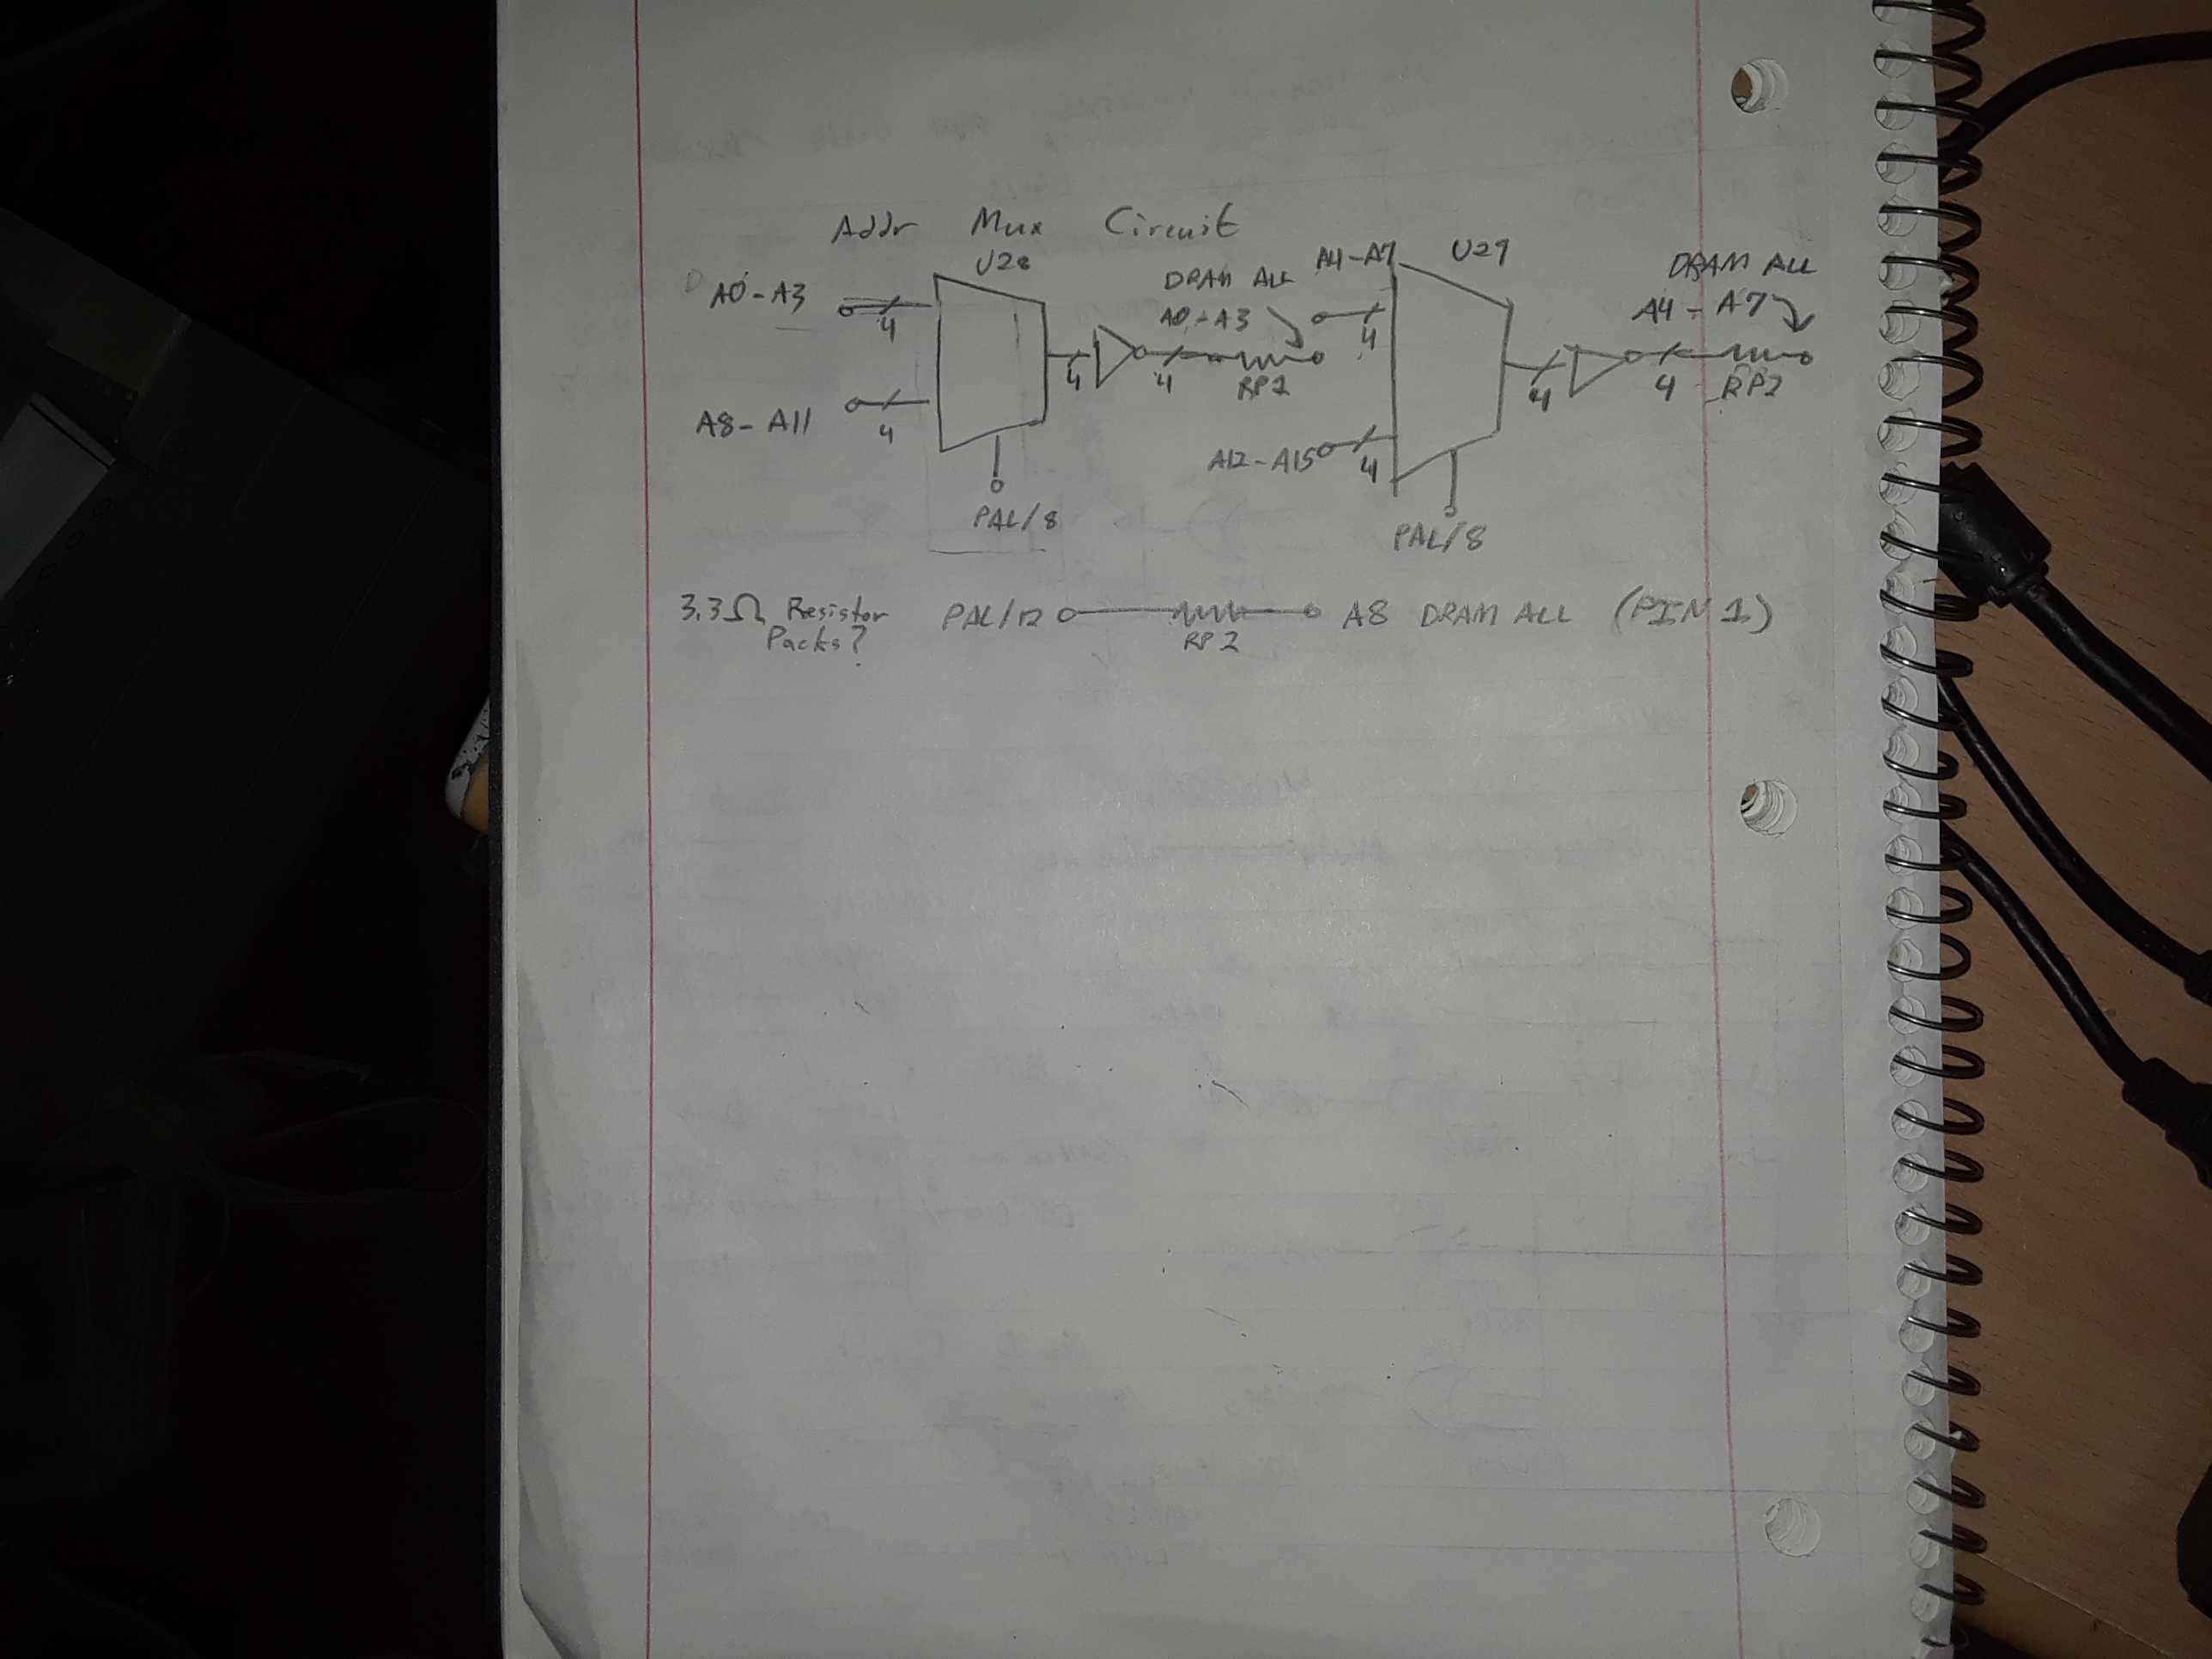 Addr Mux Circuit
U28
U29
A0-A3
4
A8-A11
4
PAL/8
4
4
RP2
DRAM ALL
A0-A3
A4-A7
4
A12-A15
4
PAL/8
4
4
RP2
DRAM ALL
A4-A7
3.3Ω Resistor
Packs?
PAL/12
RP2
A8 DRAM ALL (PIN 1)